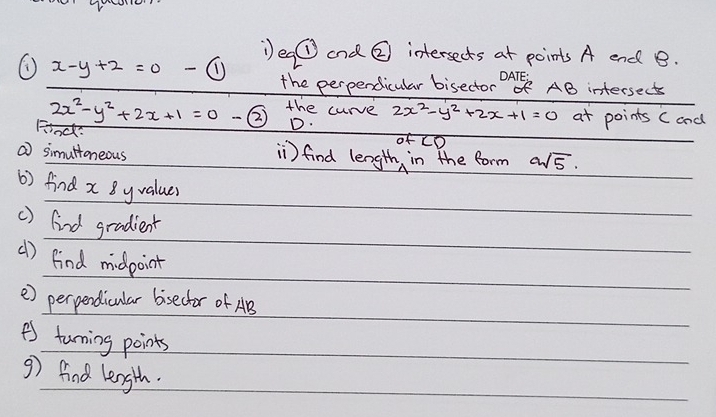 ① x-y+2 = 0 - ①
2x²-y²+2x+1 = 0 - ②
Find:
a) simultaneous
b) find x & y values
c) find gradient
d) find midpoint
e) perpendicular bisector of AB
f) turning points
g) find length.
i) eq ① and ② intersects at points A and B.
DATE:
the perpendicular bisector of AB intersects
the curve 2x²-y²+2x+1 = 0 at points C and
D.
ii) find length of CD in the form a√5.